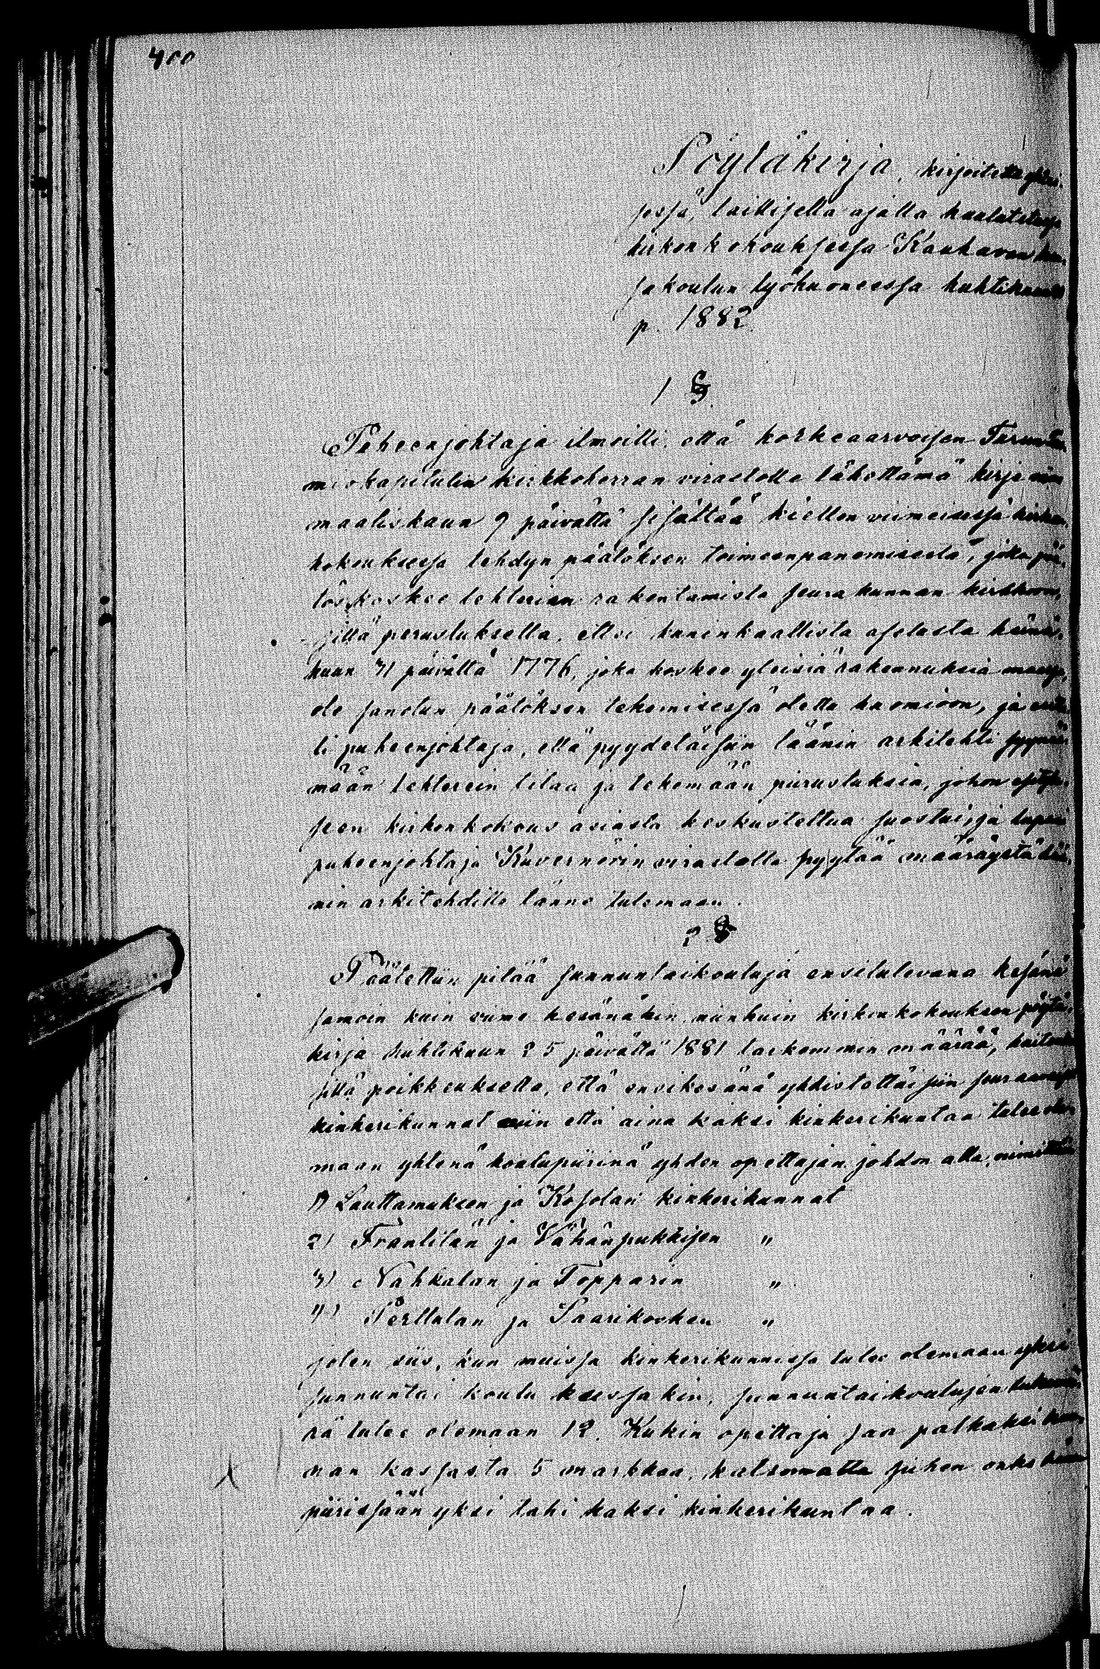 400
Pöytäkirja, kirjoitettu yhtei-
sessä, laillisella ajalla kuulutetussa
kirkonkokouksessa Kauhavan kan-
sakoulun työhuoneessa huhtikuun
p. 1882.
1 §.
Puheenjohtaja ilmoitti että korkeaarvoisen Turun tuo-
miokapitulin kirkkoherran virastolle lähettämä kirje
maaliskuun 9 päivältä sisältää kiellon viimeisessä kirkon-
kokouksessa tehdyn päätöksen toimeenpanemisesta, joka pää-
tös koskee lehterien rakentamista seurakunnan kirkkoon,
sillä perustuksella, ettei kuninkaallista asetusta heinä-
kuun 31 päivältä 1776, joka koskee yleisiä rakennuksia maalla,
ole sanotun päätöksen tekemisessä otettu huomioon, ja
ti puheenjohtaja, että pyydetäisiin läänin arkitehti
mään lehterein tilaa ja tekemään piirustuksia, johon
seen kirkonkokous asiasta keskusteltua suostui, ja lupasi
puheenjohtaja Kuvernörin virastolta pyytää määräystä lää-
nin arkitehdille tänne tulemaan.
2 §
Päätettiin pitää sunnuntaikouluja ensitulevana kesänä
samoin kuin viime kesänäkin, niinkuin kirkonkokouksen pöytä-
kirja huhtikuun 25 päivältä 1881 tarkemmin määrää,
sillä poikkeuksella, että ensikesänä yhdistettäisiin seuraavat
kinkerikunnat niin että aina kaksi kinkerikuntaa tulee ole-
maan yhtenä koulupiirinä yhden opettajan johdon alla, nimittäin
1) Luuttamuksen ja Kosolan kinkerikunnat
2) Frantilan ja Vähänpukkisen "
3) Nahkalan ja Topparin "
4) Perttulan ja Saarikosken "
joten siis, kun muissa kinkerikunnissa tulee olemaan yksi
sunnuntai koulu kussakin, sunnuntaikoulujen lukumää-
rä tulee olemaan 12. Kukin opettaja saa palkaksi kun-
nan kassasta 5 markkaa, katsomatta siihen onko hänen
piirissään yksi tahi kaksi kinkerikuntaa.